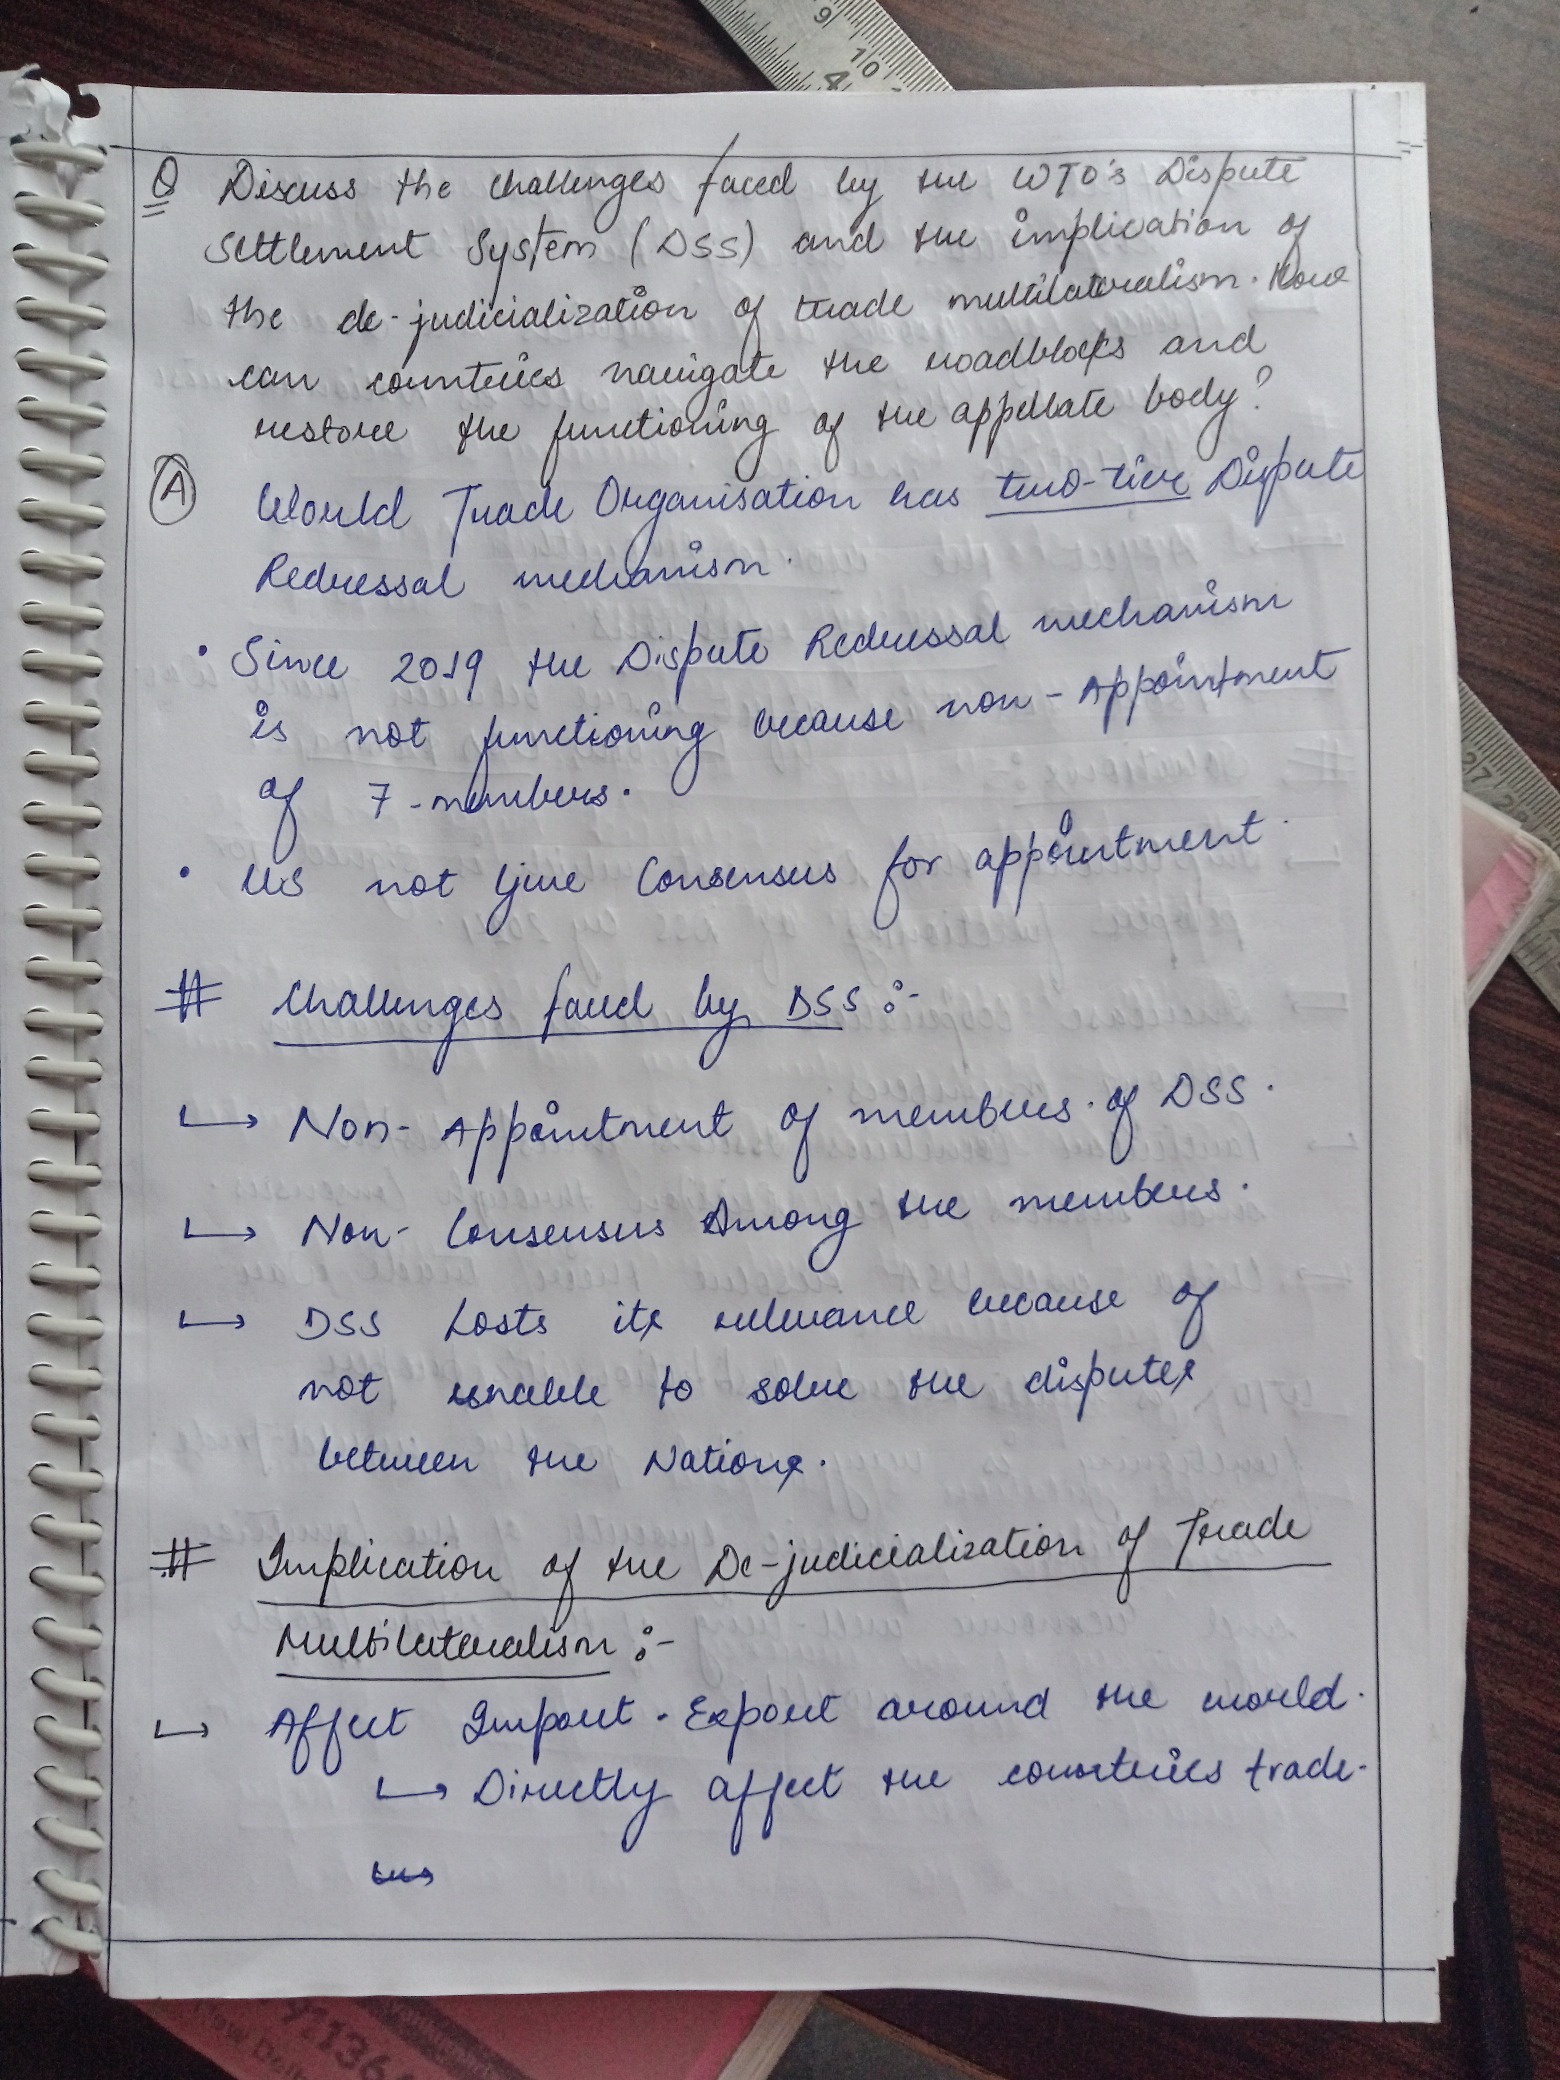 Q Discuss the challenges faced by the WTO's Dispute
Settlement System (DSS) and the implication of
the de-judicialization of trade multilateralism. How
can countries navigate the roadblocks and
restore the functioning of the appellate body?
A World Trade Organisation has two-tier Dispute
Redressal mechanism.
• Since 2019 the Dispute Redressal mechanism
is not functioning because non-Appointment
of 7-members.
• US not give Consensus for appointment.
# Challenges faced by DSS :-
↳ Non-Appointment of members of DSS.
↳ Non-Consensus Among the members.
↳ DSS Losts its relevance because of
not unable to solve the disputes
between the Nations.
# Implication of the De-judicialization of Trade
Multilateralism :-
↳ Affect Import-Export around the world.
↳ Directly affect the countries trade.
9 10
4
27